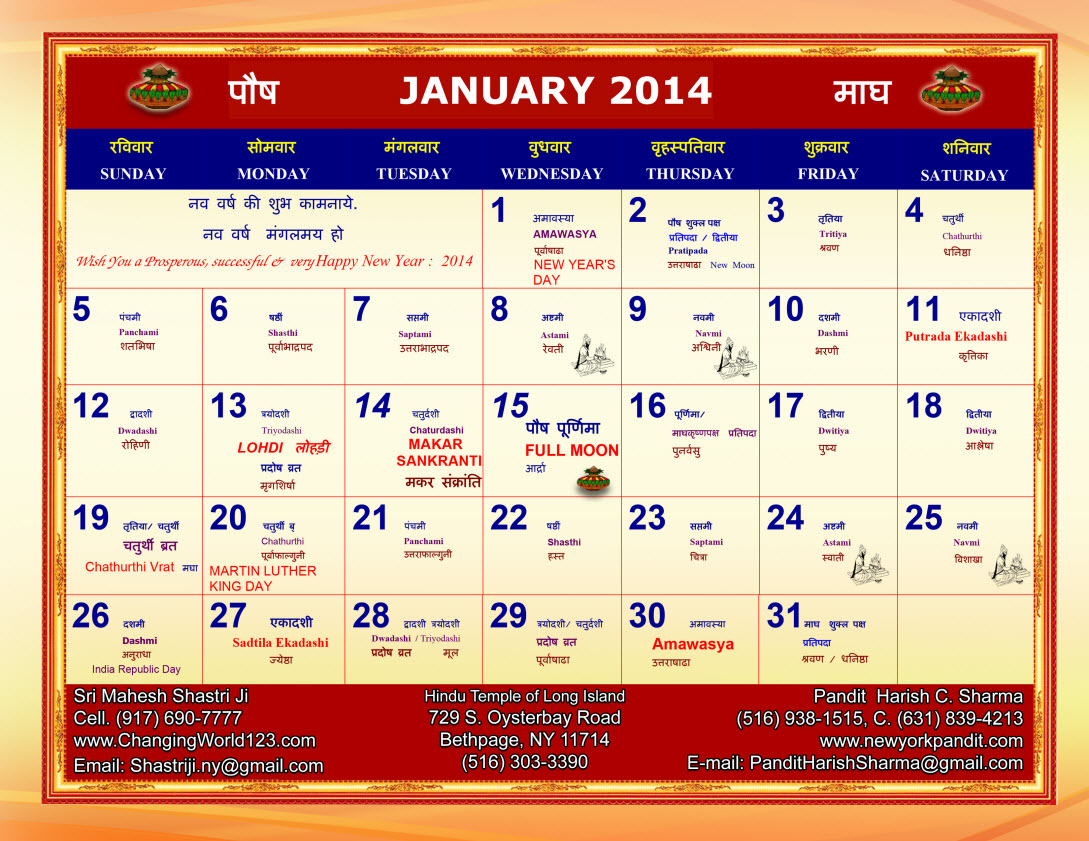 पौष JANUARY 2014 माघ
रविवार सोमवार मंगलवार वुधवार वृहस्पतिवार शुक्रवार शनिवार
SUNDAY MONDAY TUESDAY WEDNESDAY THURSDAY FRIDAY SATURDAY
नव वर्ष की शुभ कामनाये.
नव वर्ष मंगलमय हो
Wish You a Prosperous, successful & very Happy New Year : 2014
1 अमावस्या
AMAWASYA
पूर्वाषाढा
NEW YEAR'S
DAY
2 पौष शुक्ल पक्ष
प्रतिपदा / द्वितीया
Pratipada
उत्तराषाढा New Moon
3 तृतिया
Tritiya
श्रवण
4 चतुर्थी
Chathurthi
धनिष्ठा
5 पंचमी
Panchami
शतभिषा
6 षष्ठी
Shasthi
पूर्वाभाद्रपद
7 सप्तमी
Saptami
उत्तराभाद्रपद
8 अष्टमी
Astami
रेवती
9 नवमी
Navmi
अश्विनी
10 दशमी
Dashmi
भरणी
11 एकादशी
Putrada Ekadashi
कृत्तिका
12 द्वादशी
Dwadashi
रोहिणी
13 त्रयोदशी
Triyodashi
LOHDI लोहड़ी
प्रदोष व्रत
मृगशिर्षा
14 चतुर्दशी
Chaturdashi
MAKAR
SANKRANTI
मकर संक्रांति
15
पौष पूर्णिमा
FULL MOON
आर्द्रा
16 पूर्णिमा/
माघकृष्णपक्ष प्रतिपदा
पुनर्वसु
17 द्वितीया
Dwitiya
पुष्य
18 द्वितीया
Dwitiya
आश्लेषा
19 तृतिया/ चतुर्थी
चतुर्थी व्रत
Chathurthi Vrat मघा
20 चतुर्थी व्
Chathurthi
पूर्वाफाल्गुनी
MARTIN LUTHER
KING DAY
21 पंचमी
Panchami
उत्तराफाल्गुनी
22 षष्ठी
Shasthi
हस्त
23 सप्तमी
Saptami
चित्रा
24 अष्टमी
Astami
स्वाती
25 नवमी
Navmi
विशाखा
26 दशमी
Dashmi
अनुराधा
India Republic Day
27 एकादशी
Sadtila Ekadashi
ज्येष्ठा
28 द्वादशी त्रयोदशी
Dwadashi / Triyodashi
प्रदोष व्रत मूल
29 त्रयोदशी/ चतुर्दशी
प्रदोष व्रत
पूर्वाषाढा
30 अमावस्या
Amawasya
उत्तराषाढा
31 माघ शुक्ल पक्ष
प्रतिपदा
श्रवण / धनिष्ठा
Sri Mahesh Shastri Ji
Cell. (917) 690-7777
www.ChangingWorld123.com
Email: Shastriji.ny@gmail.com
Hindu Temple of Long Island
729 S. Oysterbay Road
Bethpage, NY 11714
(516) 303-3390
Pandit Harish C. Sharma
(516) 938-1515, C. (631) 839-4213
www.newyorkpandit.com
E-mail: PanditHarishSharma@gmail.com